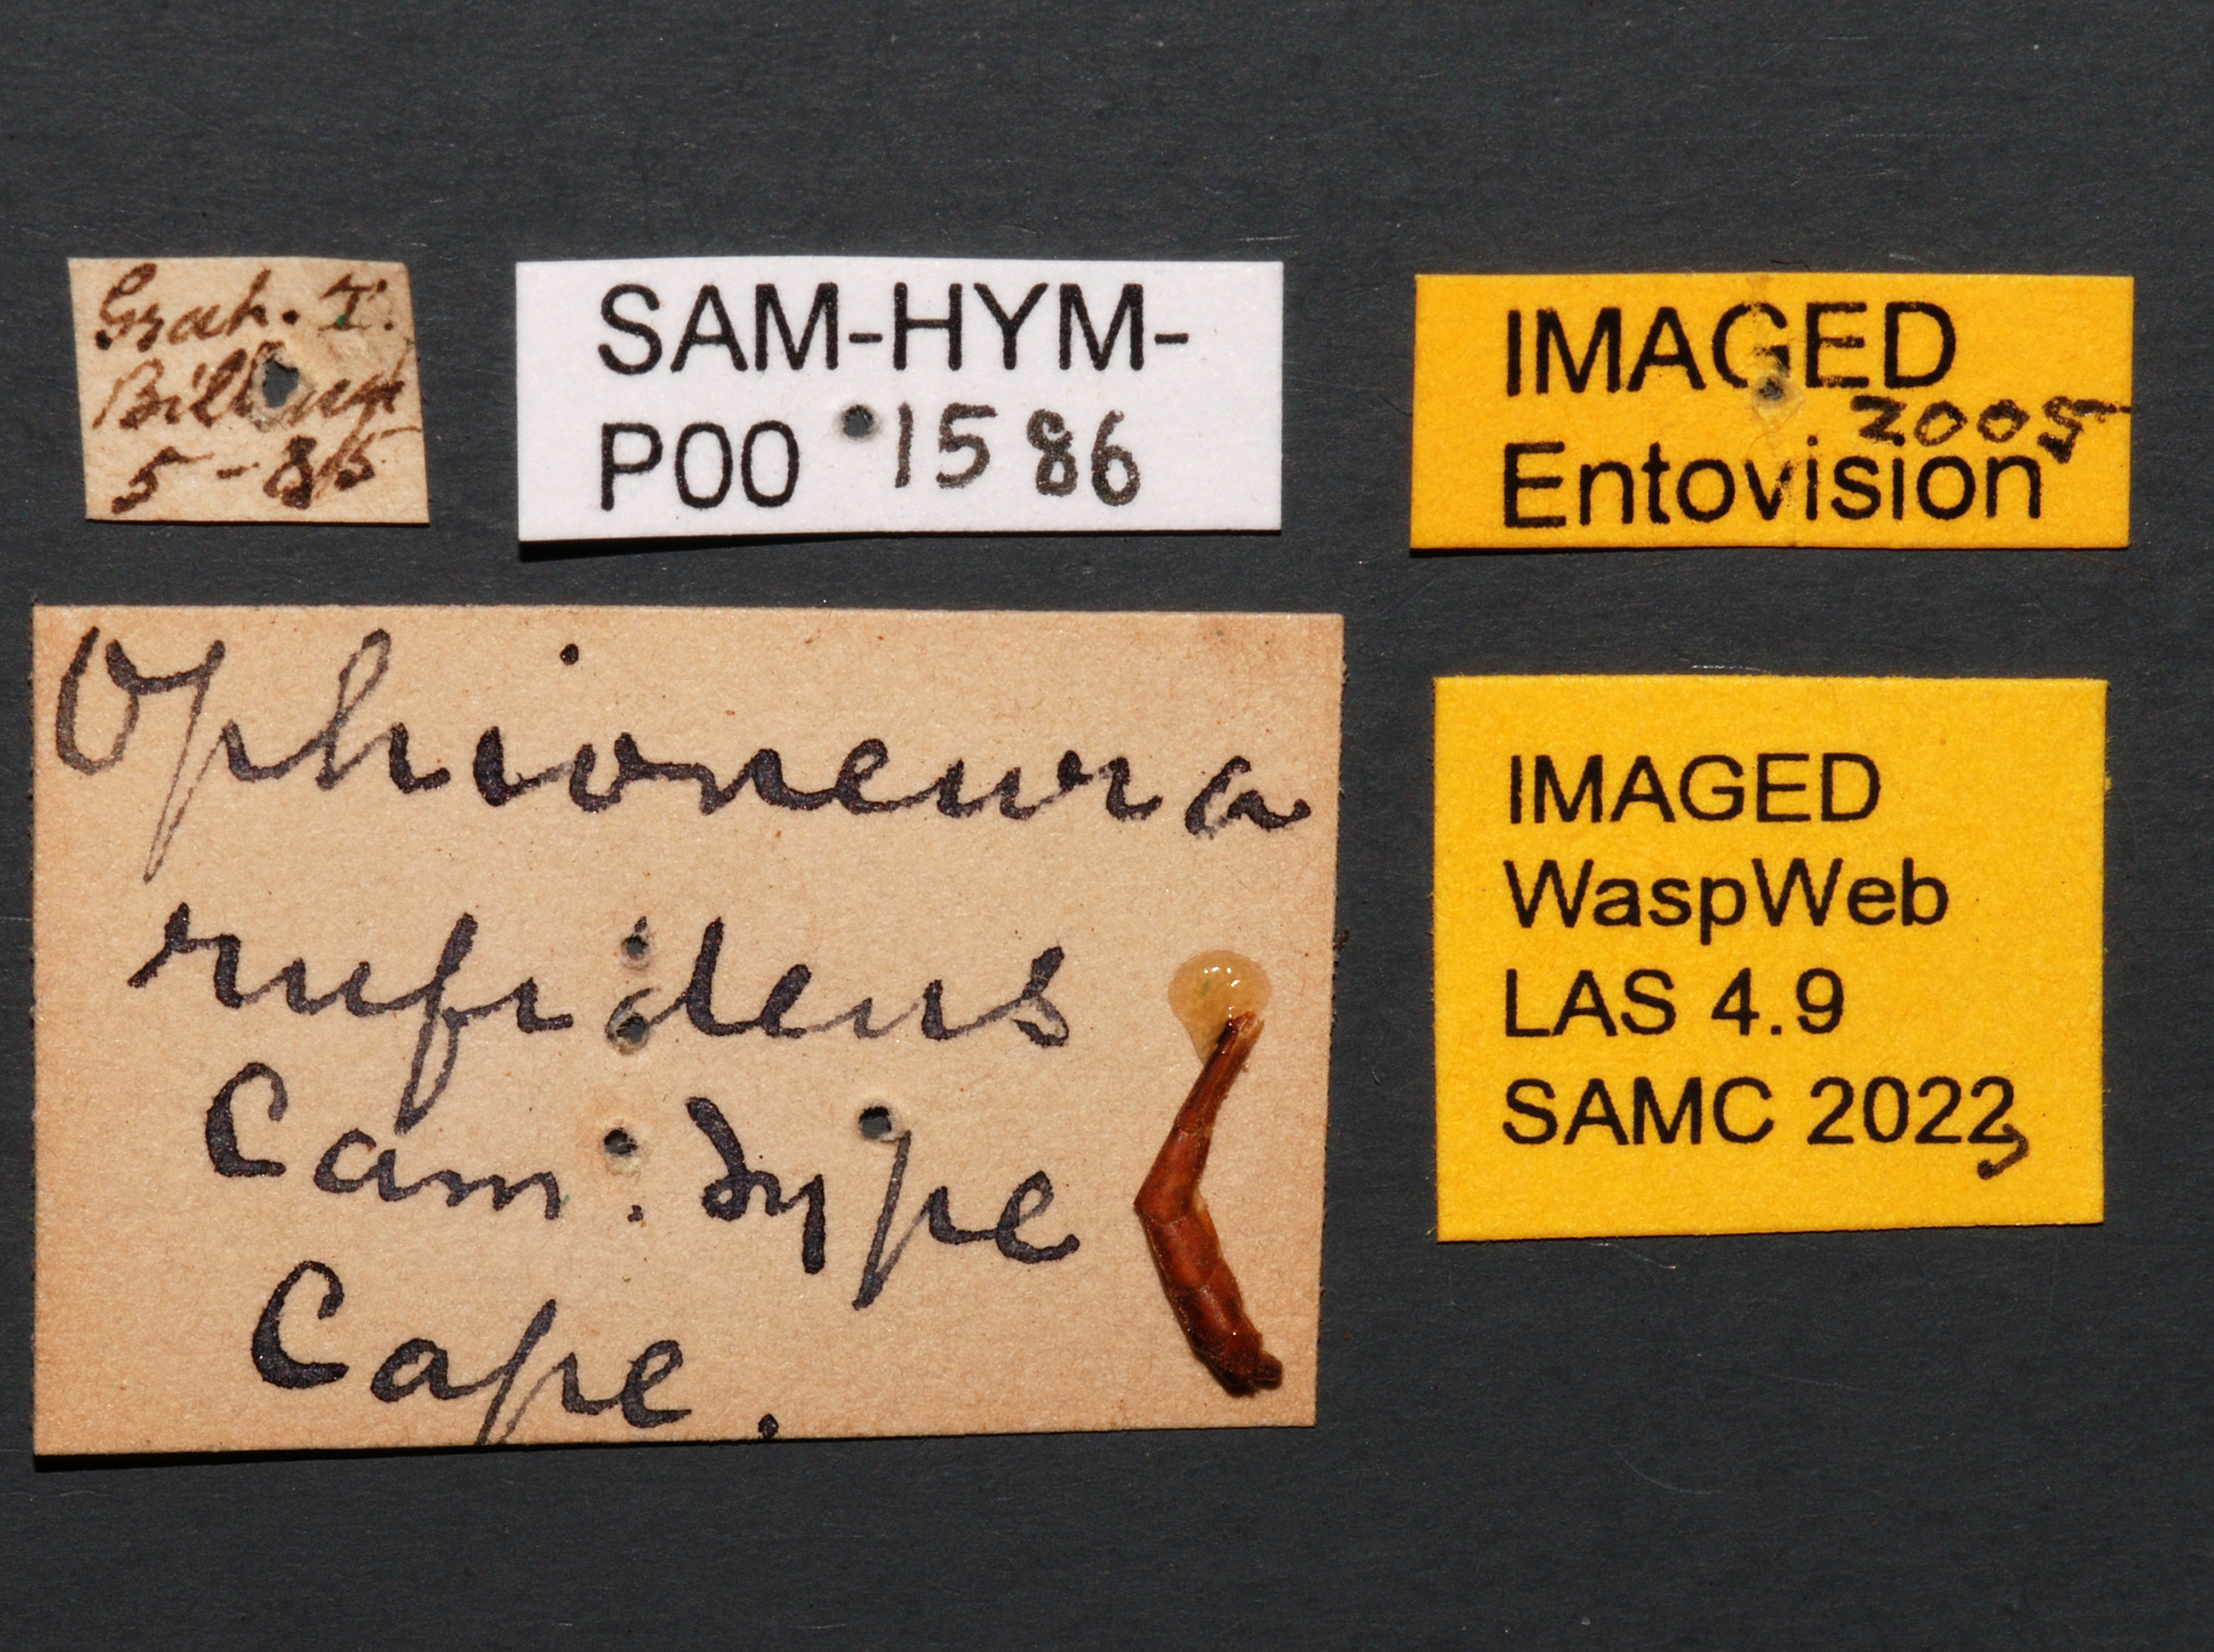 Grah. T.
5-85
SAM-HYM-
P00 1586
IMAGED
2005
Entovision
Ophioneura
rufidens
Cam. Type
Cape.
IMAGED
WaspWeb
LAS 4.9
SAMC 2022